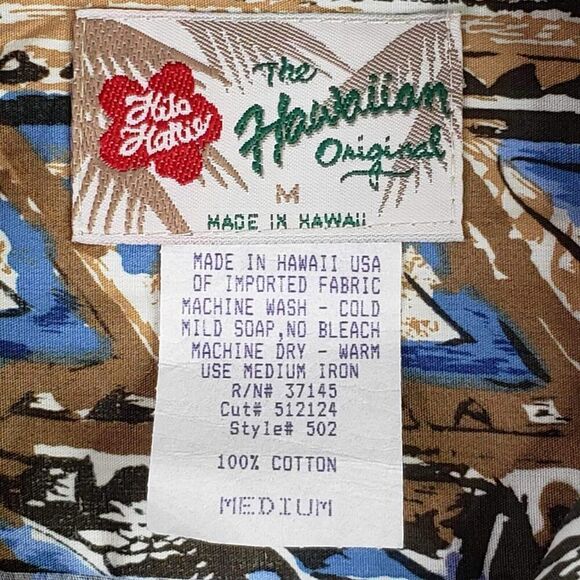 Hilo
Hattie
The
Hawaiian
Original
M
MADE IN HAWAII
MADE IN HAWAII USA
OF IMPORTED FABRIC
MACHINE WASH - COLD
MILD SOAP,NO BLEACH
MACHINE DRY - WARM
USE MEDIUM IRON
R/N# 37145
Cut# 512124
Style# 502
100% COTTON
MEDIUM